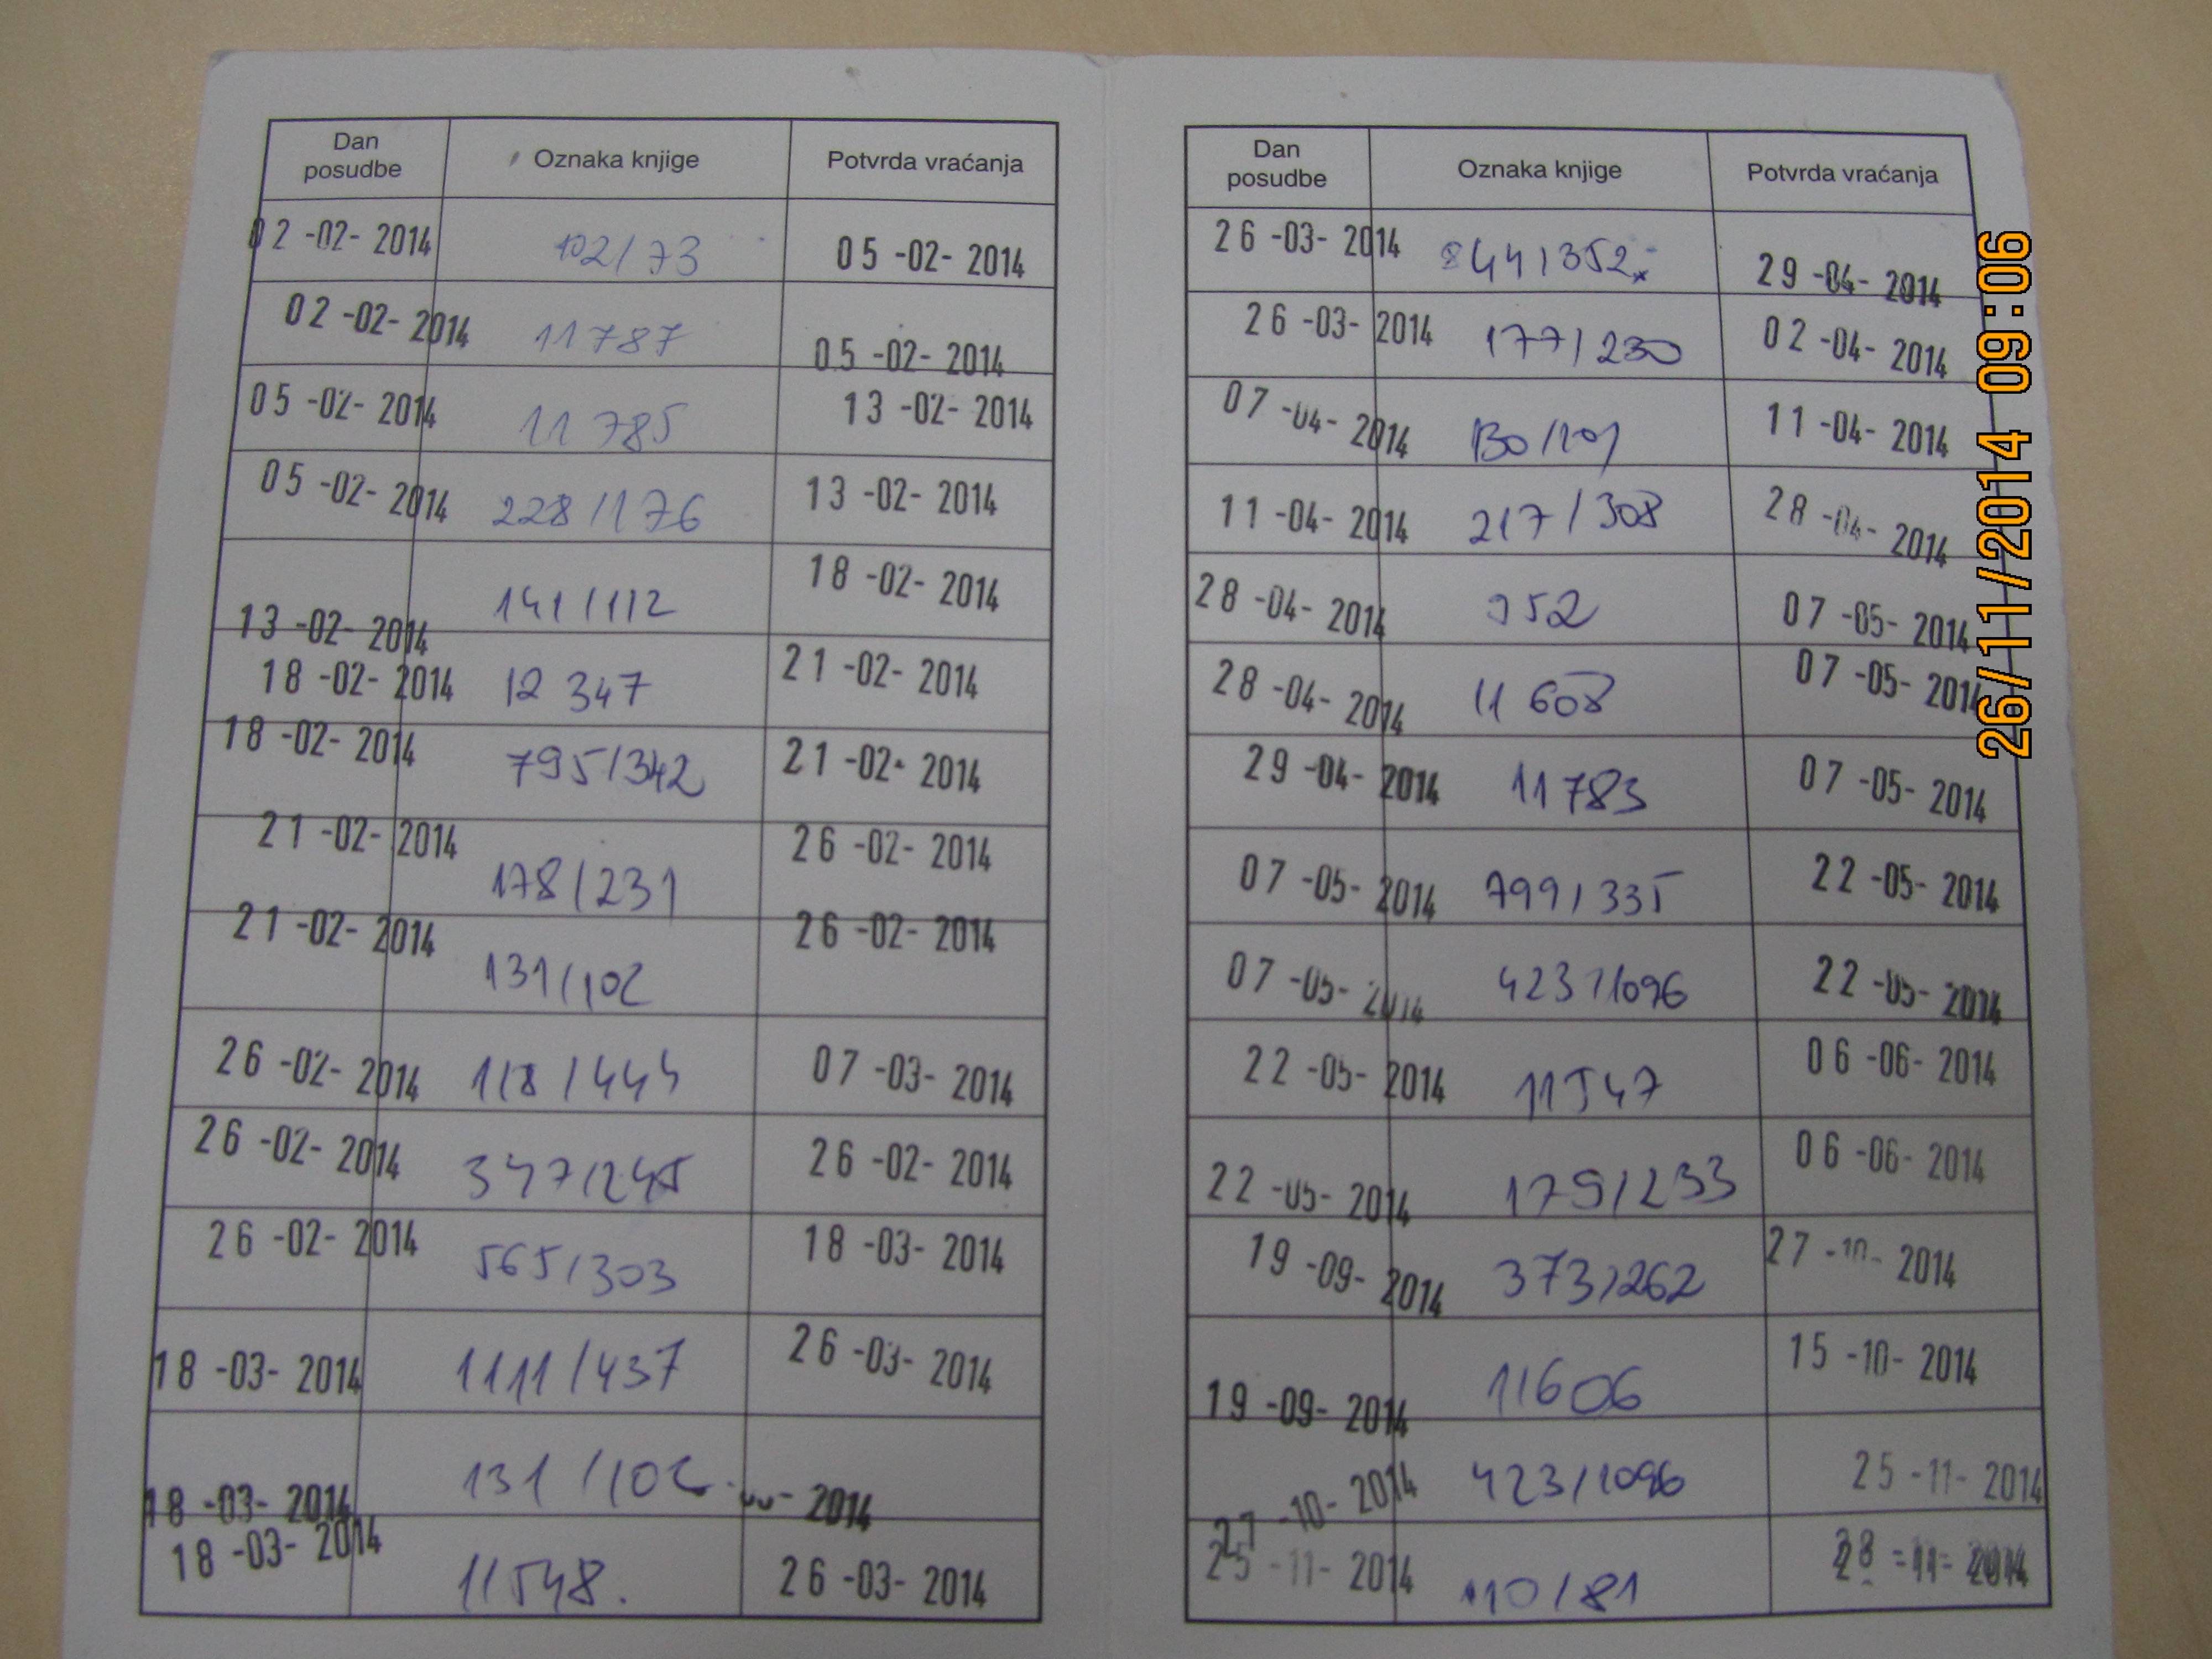 Dan posudbe Oznaka knjige Potvrda vraćanja
02 -02- 2014 102/73 05 -02- 2014
02 -02- 2014 11787 05 -02- 2014
05 -02- 2014 11 785 13 -02- 2014
05 -02- 2014 228/176 13 -02- 2014
13 -02- 2014 141/112 18 -02- 2014
18 -02- 2014 12 347 21 -02- 2014
18 -02- 2014 795/342 21 -02- 2014
21 -02- 2014 178/231 26 -02- 2014
21 -02- 2014 131/102 26 -02- 2014
26 -02- 2014 118/444 07 -03- 2014
26 -02- 2014 347/245 26 -02- 2014
26 -02- 2014 565/303 18 -03- 2014
18 -03- 2014 1111/437 26 -03- 2014
18 -03- 2014 131/102 2014
18 -03- 2014 11548. 26 -03- 2014
Dan posudbe Oznaka knjige Potvrda vraćanja
26 -03- 2014 844/352 29 -04- 2014
26 -03- 2014 177/230 02 -04- 2014
07 -04- 2014 130/101 11 -04- 2014
11 -04- 2014 217/308 28 -04- 2014
28 -04- 2014 952 07 -05- 2014
28 -04- 2014 11 608 07 -05- 2014
29 -04- 2014 11783 07 -05- 2014
07 -05- 2014 799/335 22 -05- 2014
07 -05- 2014 423/1096 22 -05- 2014
22 -05- 2014 11547 06 -06- 2014
22 -05- 2014 179/233 06 -06- 2014
19 -09- 2014 373/262 27 -10- 2014
19 -09- 2014 11606 15 -10- 2014
27 -10- 2014 423/1096 25 -11- 2014
25 -11- 2014 110/81 -11- 2014
26/11/2014 09:06